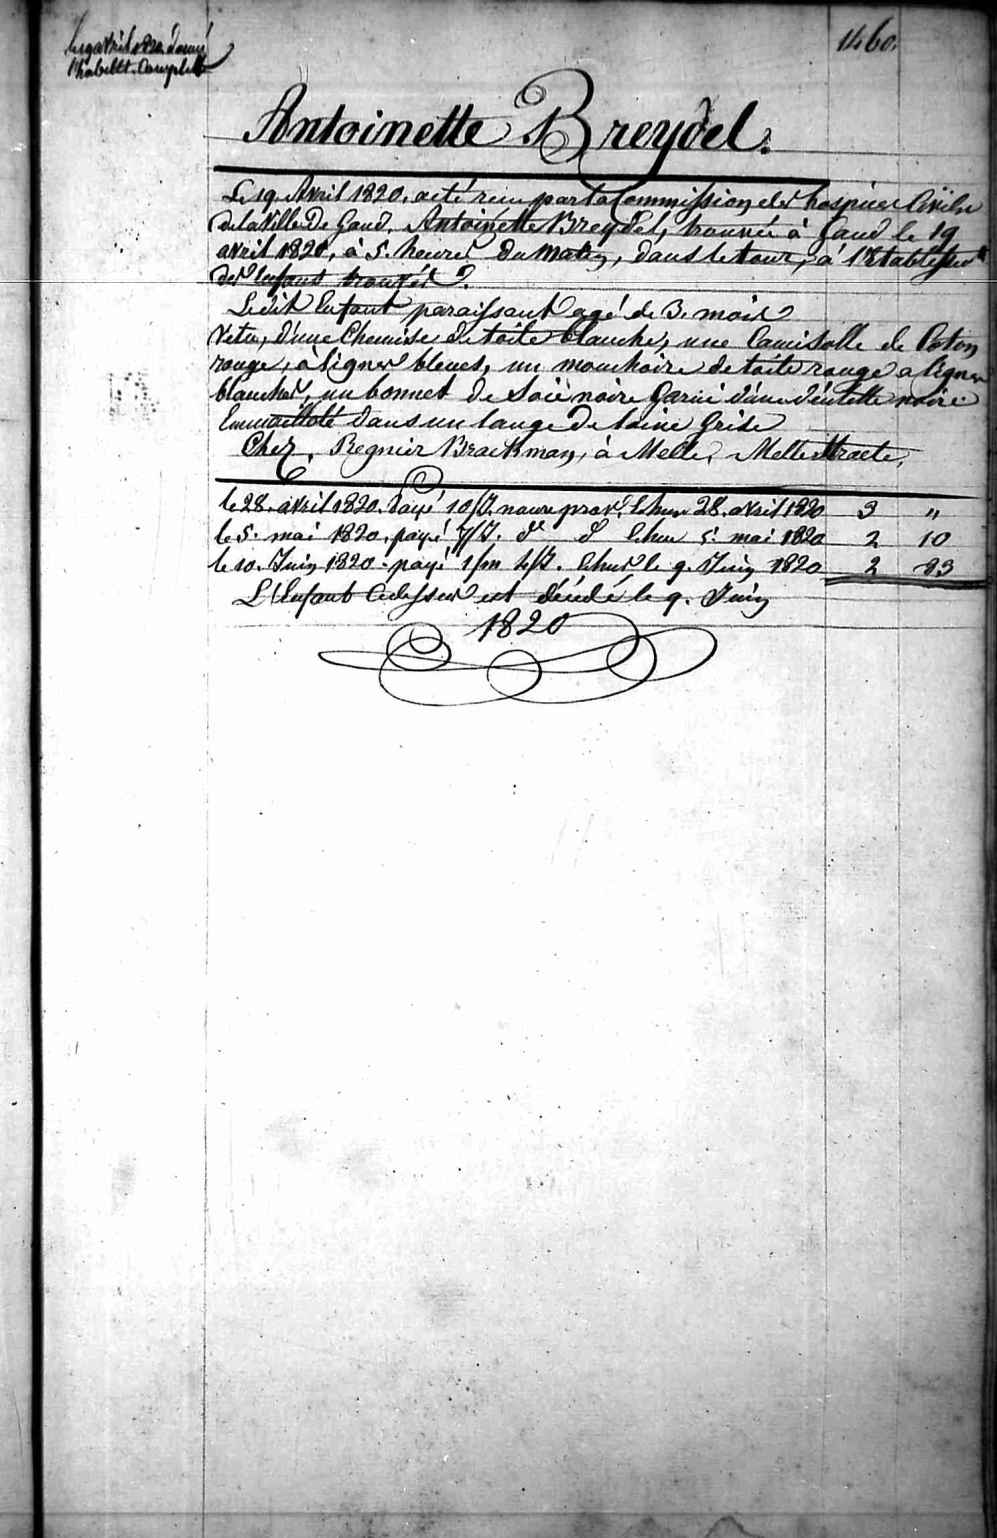 1460.
Le 19 avril 1820 donné
l'habillt. Complette
Antoinette Breydel.
Le 19. Avril 1820, a eté recu par la Commission des hospices Civiles
de la Ville De Gand, Antoinette Breydel, trouvée à Gand le 19
avril 1820, à 5. heures Du Matin, dans le tour, à l'Etablissemt
des Enfans trouvés.
Le dit Enfant paraissant agé de 3. mois
Vetu, d'une Chemise de toile blanche, une Camisolle de Coton
rouge, à lignes bleues, un mouchoire de toile rouge a lignes
blanches, un bonnet de Soie noire Garnie d'une dentelle noire.
Emmailloté dans un lange De laine Grise
Chez, Regnier Braekman, à Melle, Mellestraete.
le 28. avril 1820. Payé 10/J. nourr prov. Echus 28. avril 1820 3 "
le 5. mai 1820. payé 7/J. do do Echus 5. mai 1820 2 10
le 10. Juin 1820. payé 1/m 4/J. Echus le 9. Juin 1820 2 83
L'Enfant Cidessus est décédé le 9. Juin
1820